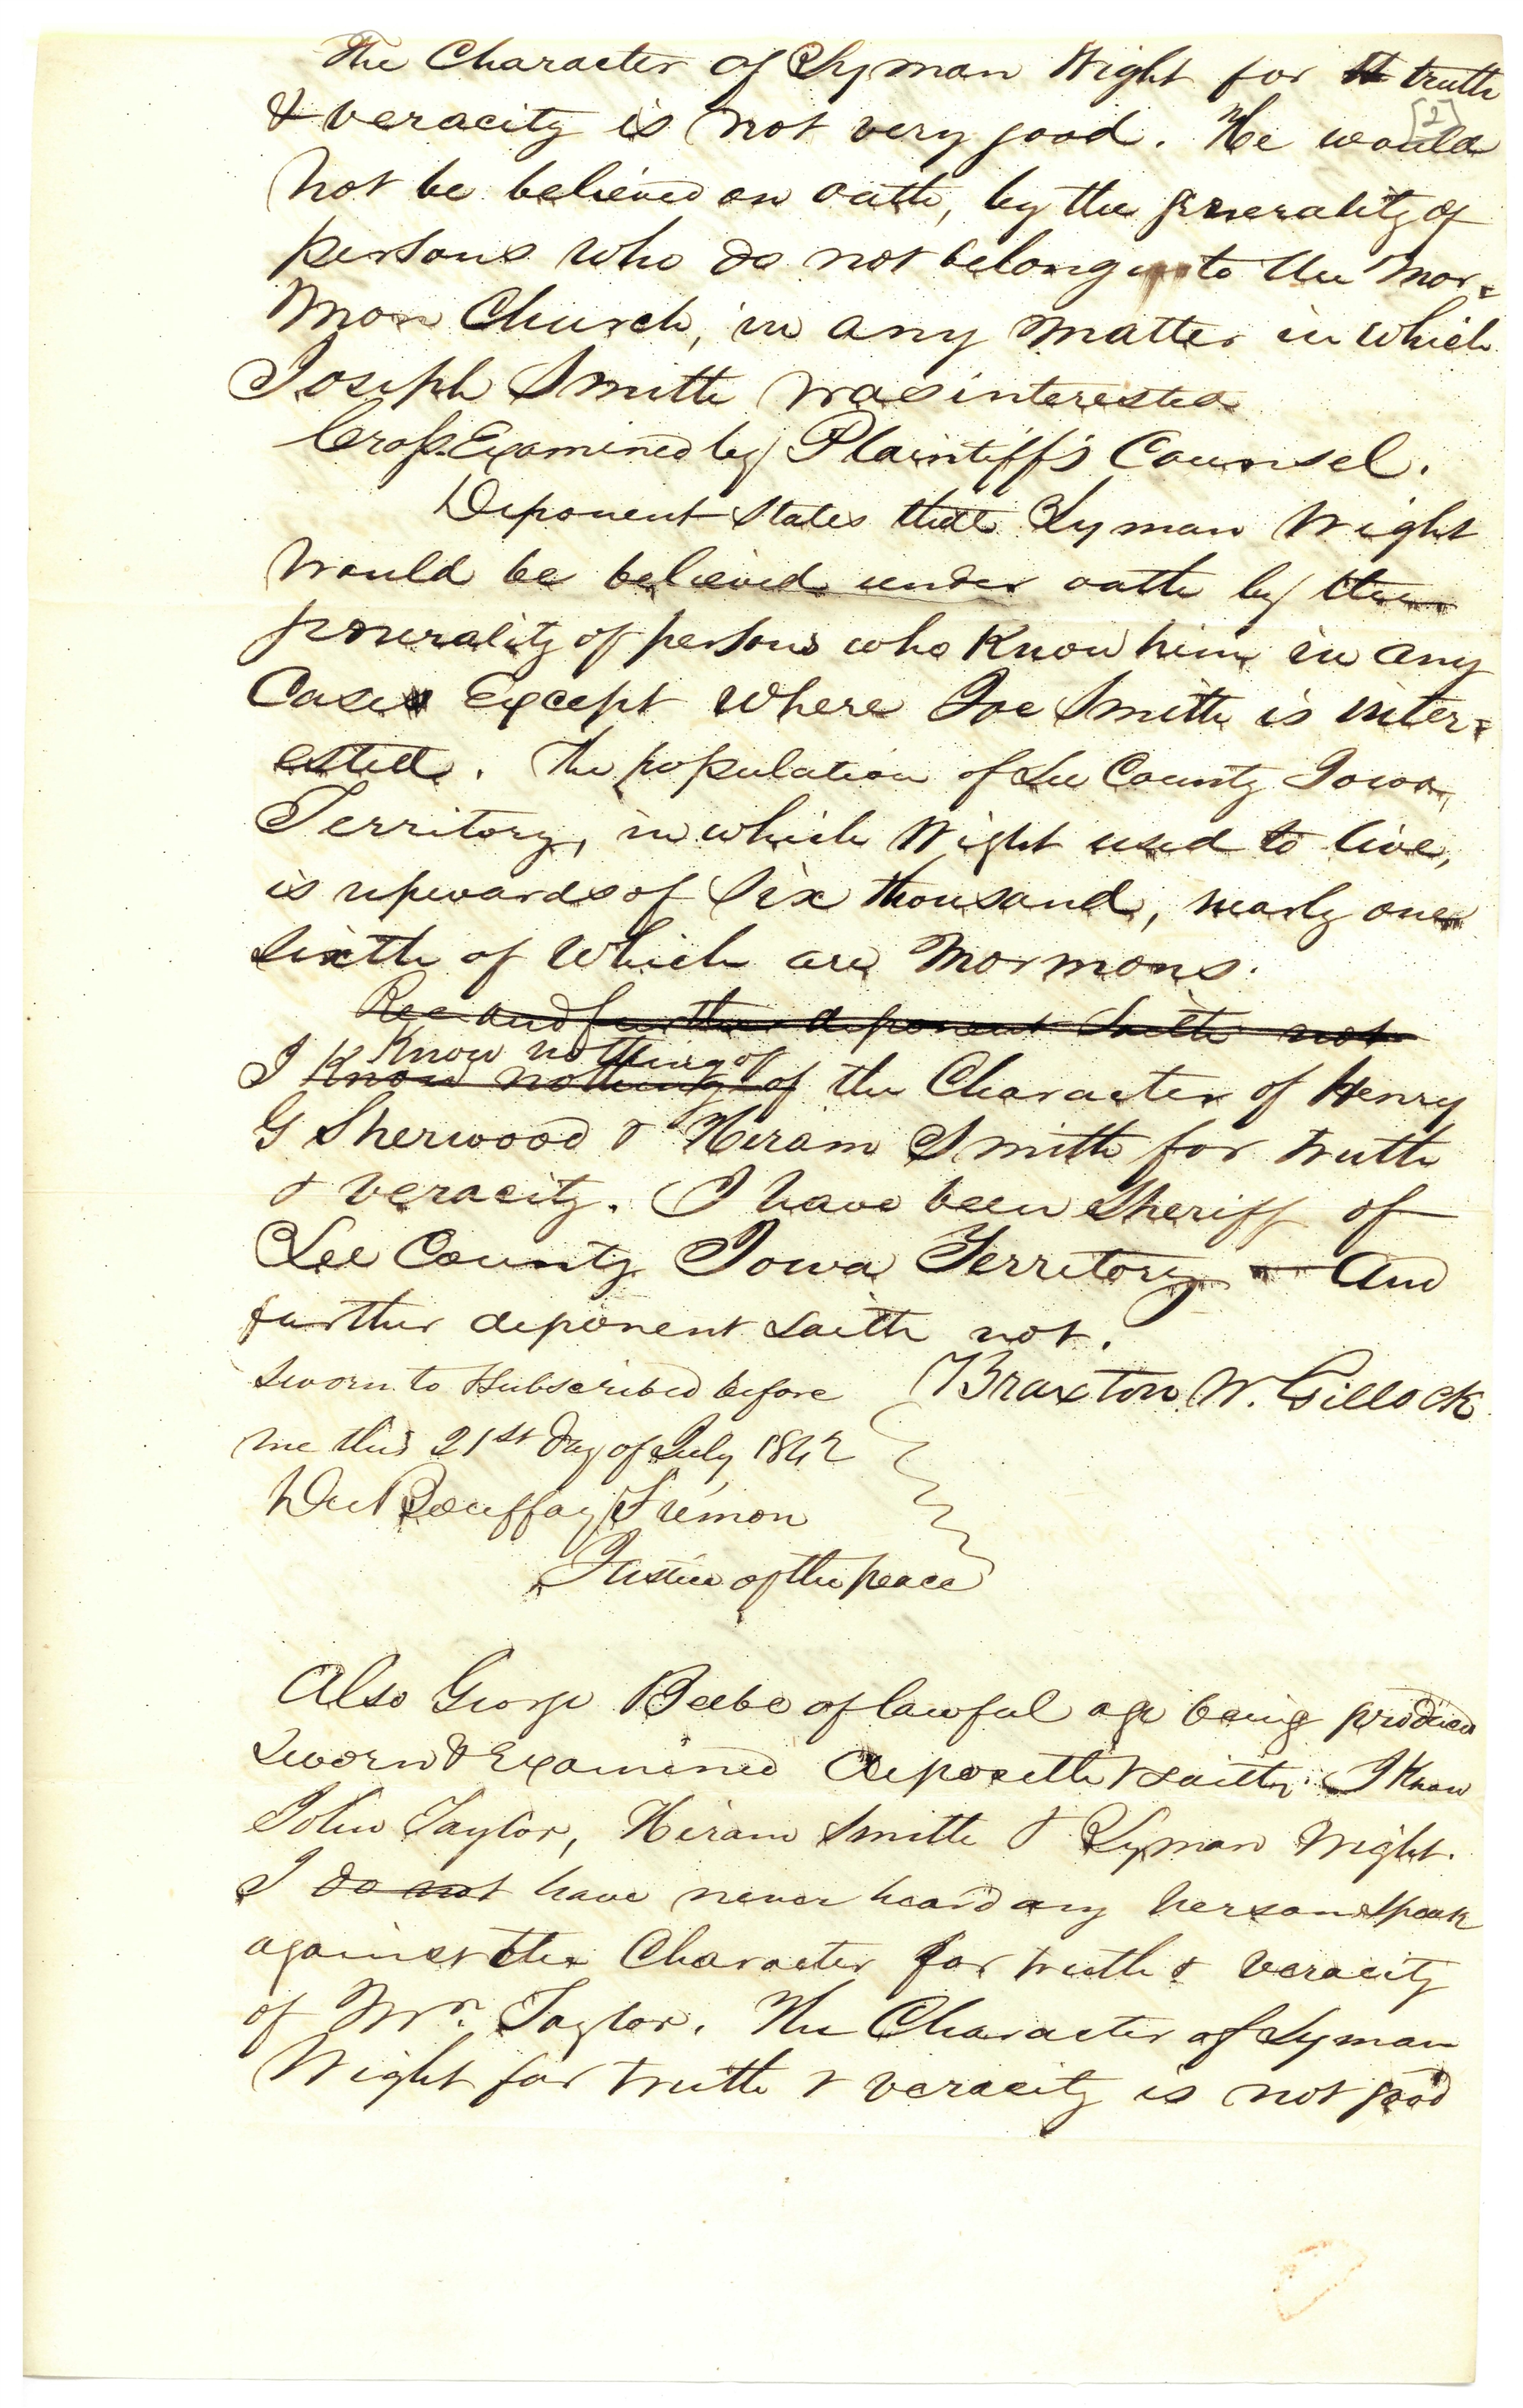 The Character of Lyman Wight for tt truth
[2]
& veracity is not very good. He would
not be believed on oath, by the generality of
persons who do not belong to the Mor=
mon Church, in any matter in which
Joseph Smith was interested
Cross Examined by Plaintiff's Counsel.
Deponent states that Lyman Wight
would be believed under oath by the
generality of persons who know him in any
Case Except where Joe Smith is inter=
ested. The population of Lee County Iowa
Territory, in which Wight used to live,
is upwards of Six thousand, nearly one
sixth of which are Mormons.
and further deponent saith not
know nothing of
I know nothing of the Character of Henry
G Sherwood & Hiram Smith for truth
& veracity. I have been Sheriff of
Lee County Iowa Territory — And
further deponent saith not.
Sworn to & subscribed before Braxton W. Gillock
me this 21st day of July 1842
Justice of the peace
Also George Beebe of lawful age being produced
sworn & Examined deposeth & saith. I Know
John Taylor, Hiram Smith & Lyman Wight.
I do not have never heard any person speak
against the Character for truth & veracity
of Mr. Taylor. The Character of Lyman
Wight for truth & veracity is not good